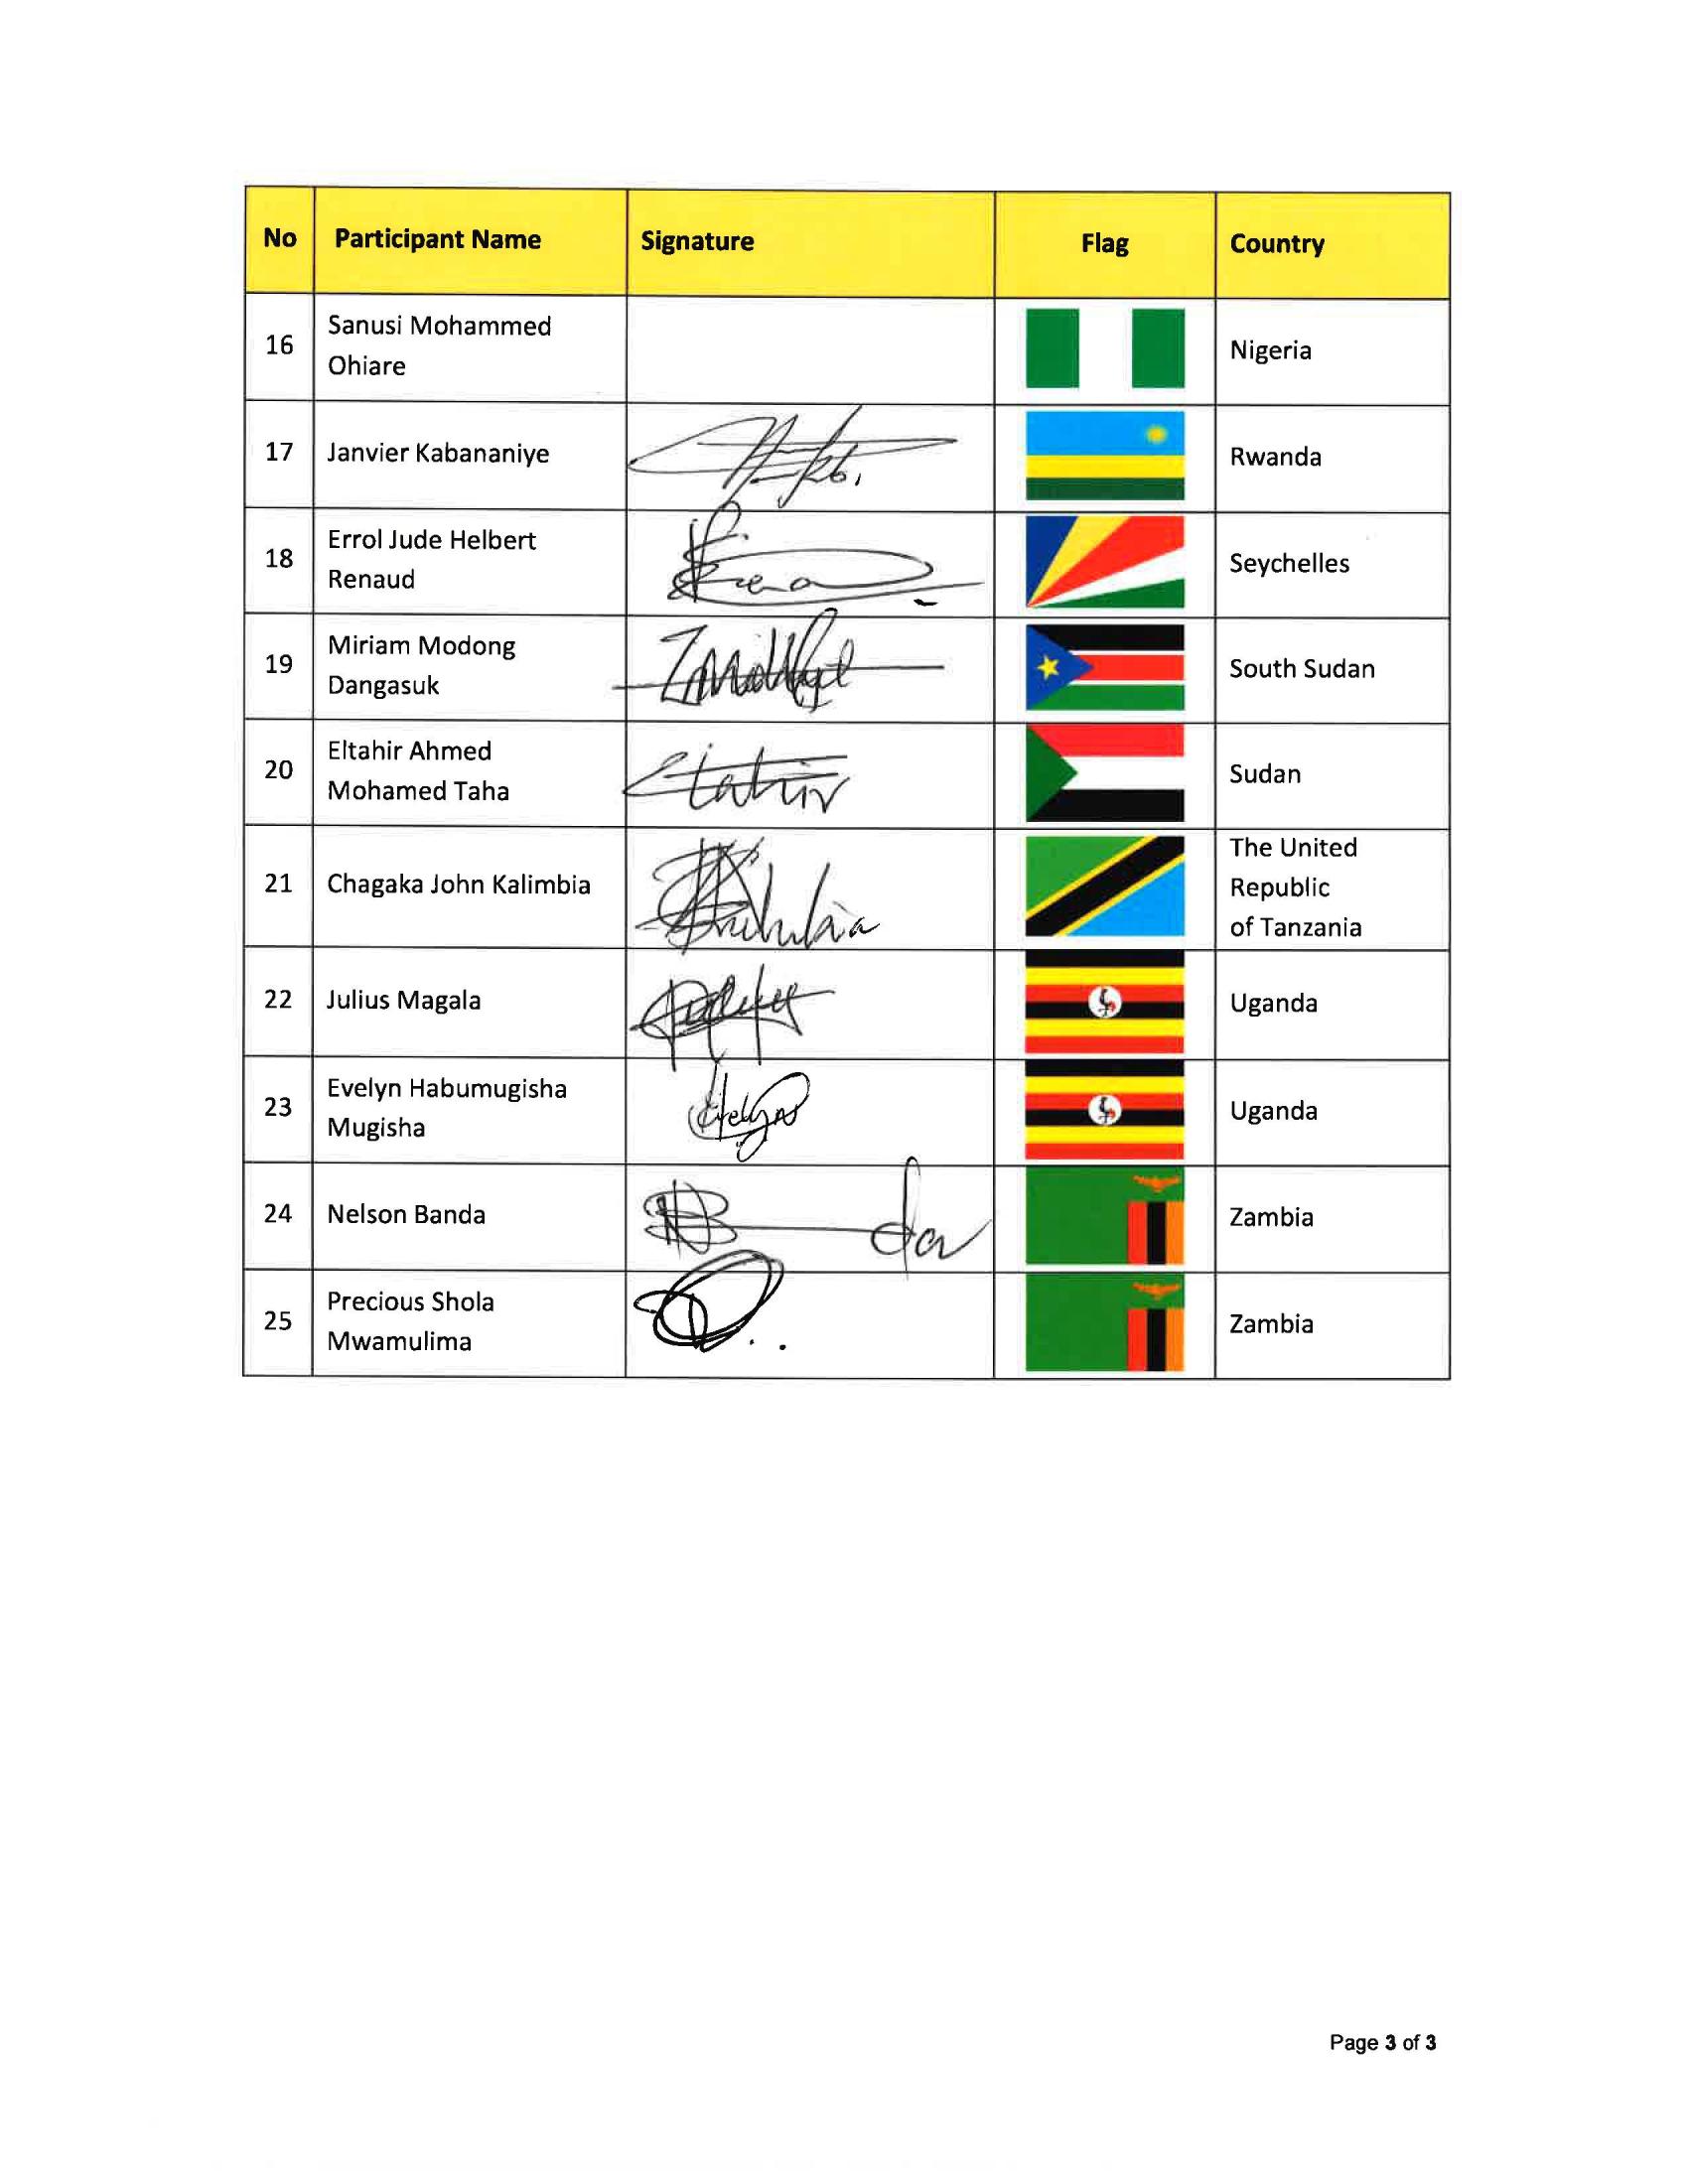 No Participant Name Signature Flag Country
16 Sanusi Mohammed Ohiare Nigeria
17 Janvier Kabananiye Rwanda
18 Errol Jude Helbert Renaud Seychelles
19 Miriam Modong Dangasuk South Sudan
20 Eltahir Ahmed Mohamed Taha Eltahir Sudan
21 Chagaka John Kalimbia The United Republic of Tanzania
22 Julius Magala Uganda
23 Evelyn Habumugisha Mugisha Uganda
24 Nelson Banda Zambia
25 Precious Shola Mwamulima Zambia
Page 3 of 3